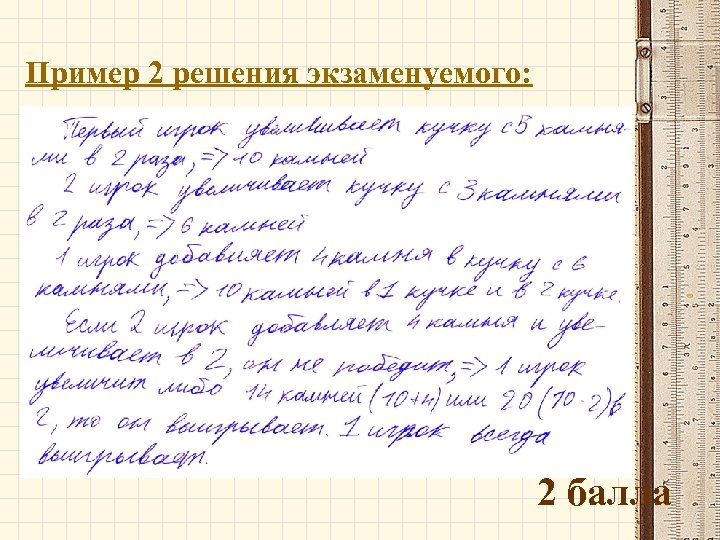 Пример 2 решения экзаменуемого:
Первый игрок увеличивает кучку с 5 камня-
ми в 2 раза, => 10 камней
2 игрок увеличивает кучку с 3 камнями
в 2 раза, => 6 камней
1 игрок добавляет 4 камня в кучку с 6
камнями, => 10 камней в 1 кучке и в 2 кучке.
Если 2 игрок добавляет 4 камня и уве-
личивает в 2, он не победит, => 1 игрок
увеличит либо 14 камней (10+4) или 20 (10·2) в
2, то он выигрывает. 1 игрок всегда
выигрывает.
2 балла